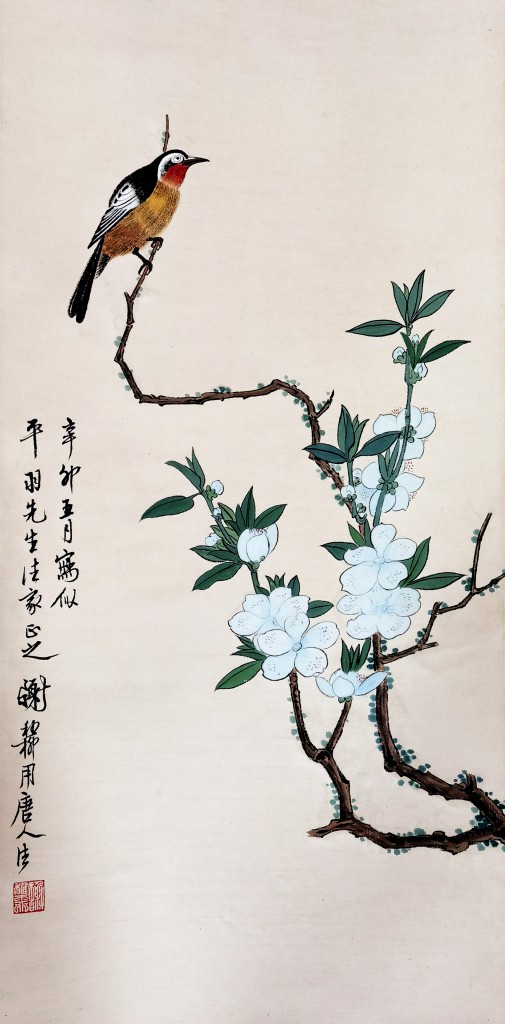 辛卯五月寫似
平羽先生法家正之 謝稚柳用唐人法